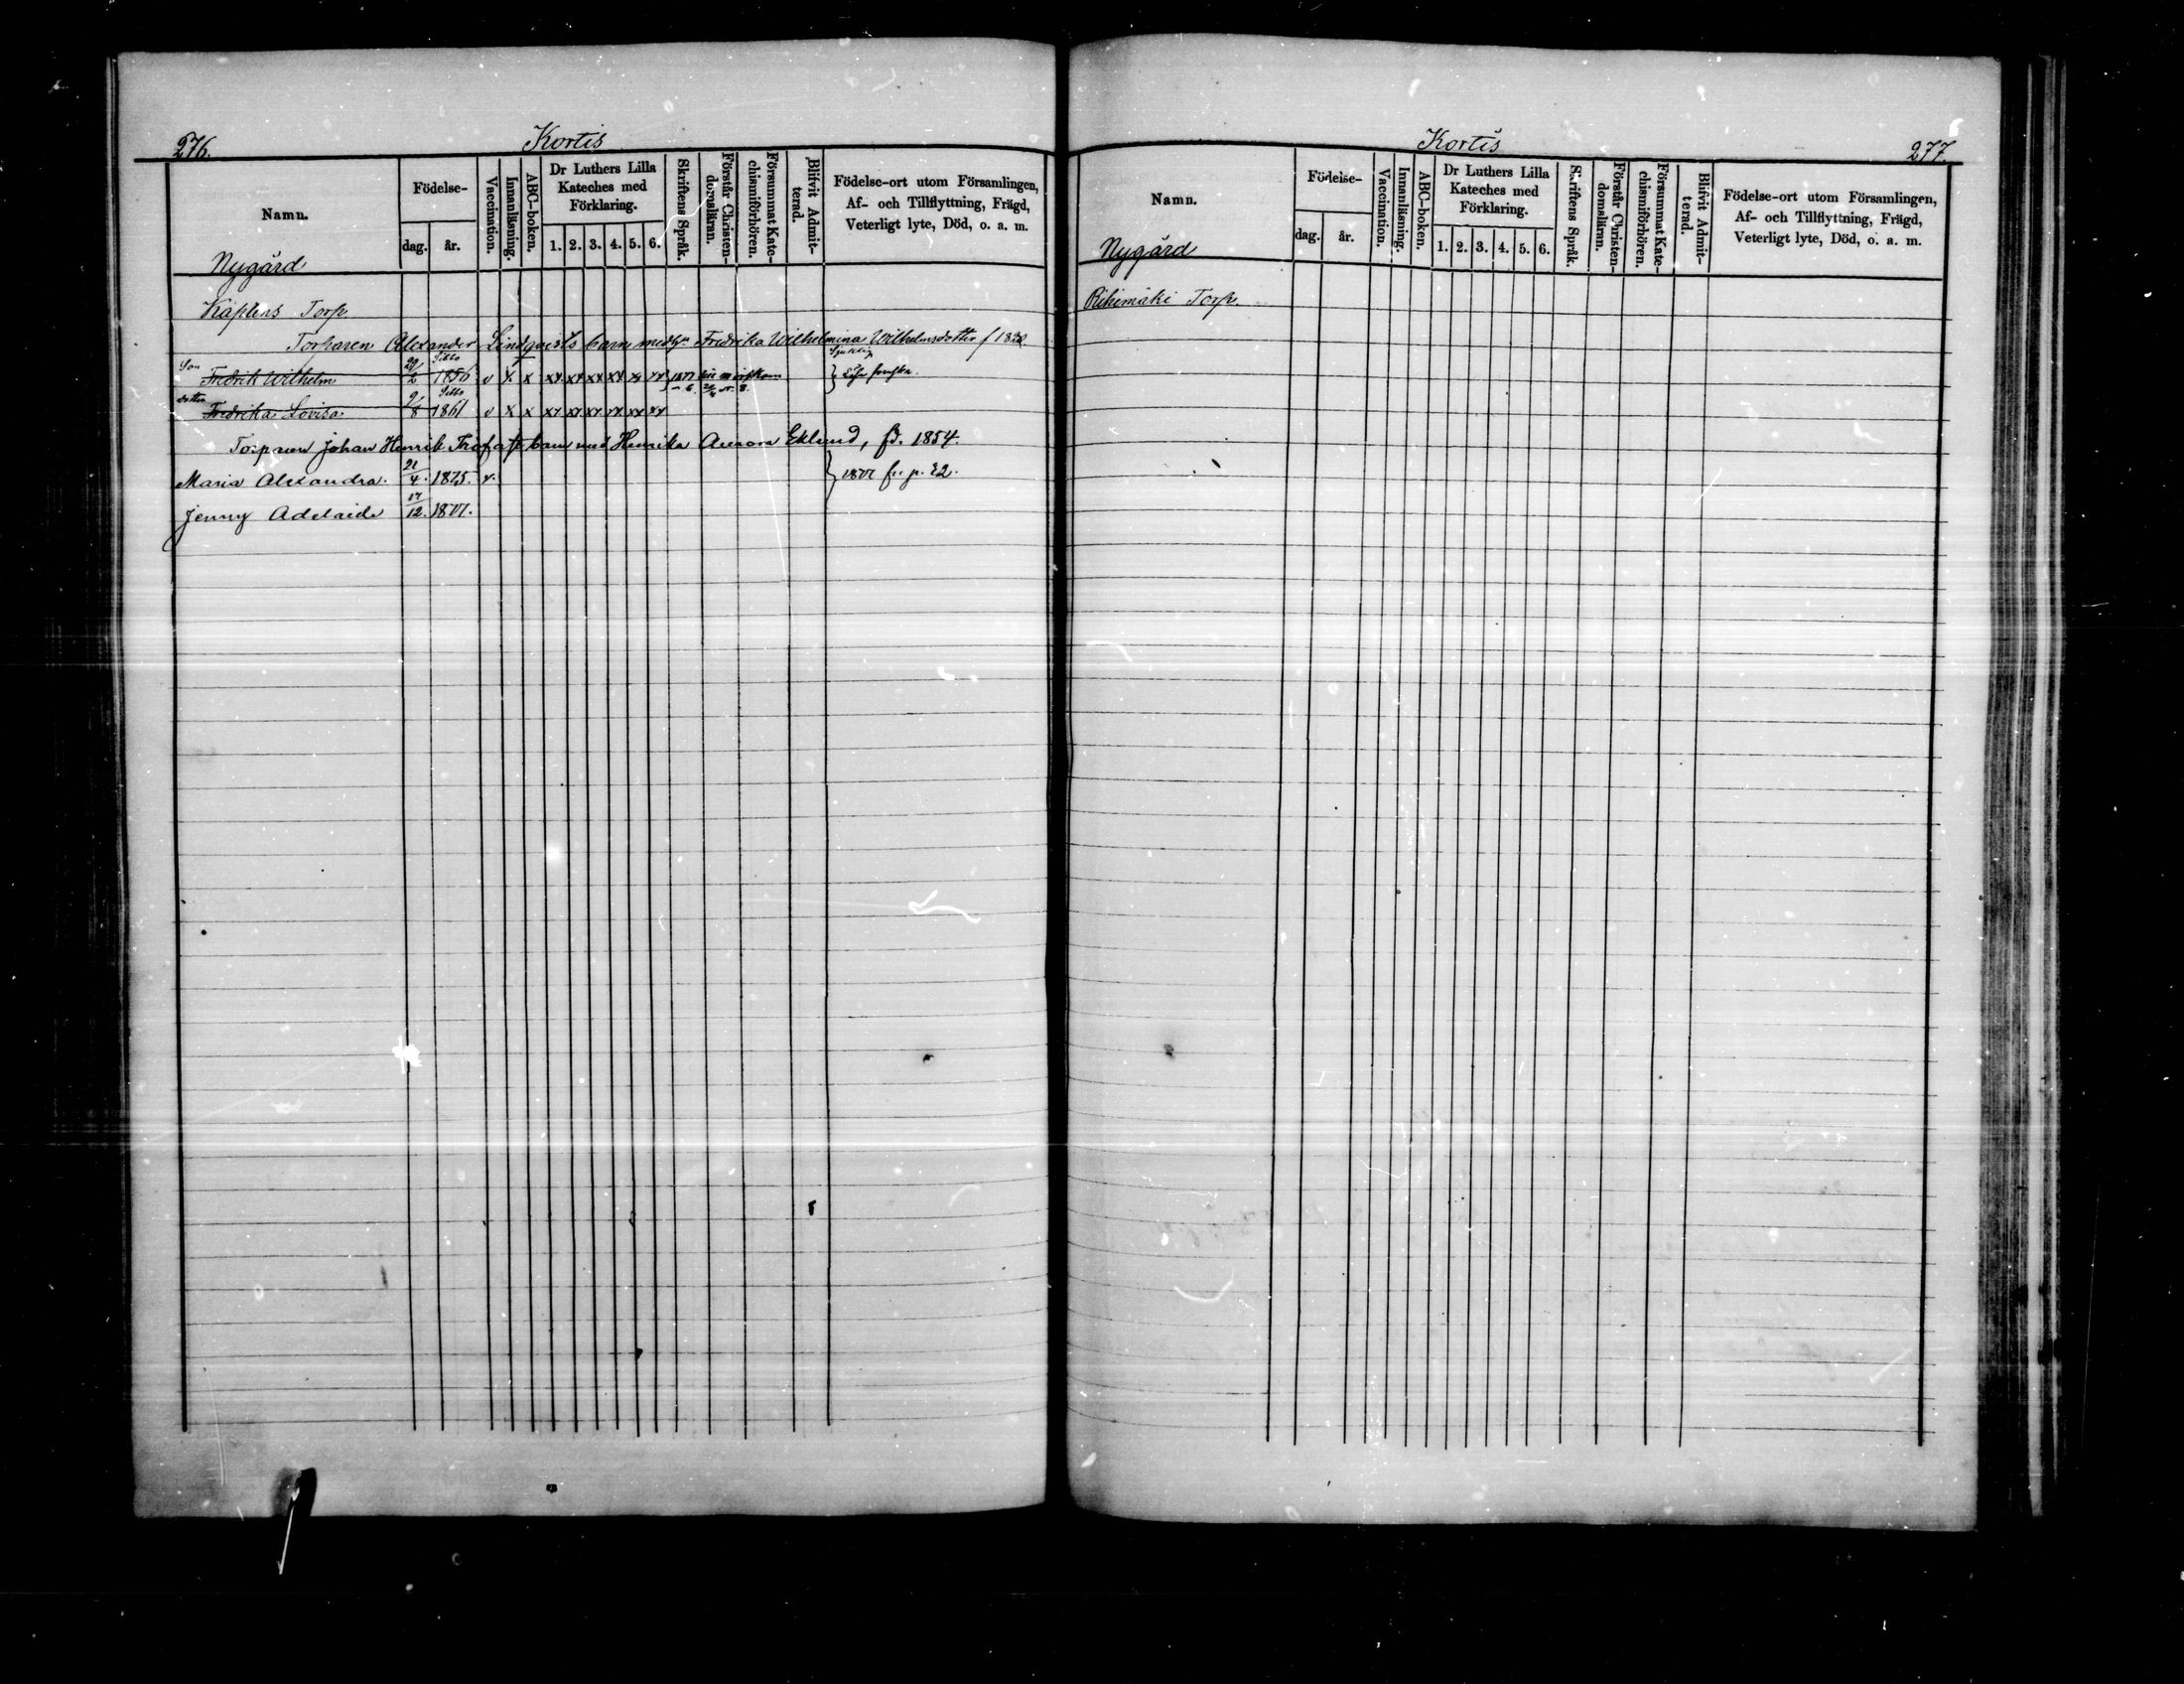 276.
Kortis
Namn.
Födelse-
dag.
år.
Vaccination.
Innanläsning.
ABC-boken.
Dr Luthers Lilla
Kateches med
Förklaring.
1. 2. 3. 4. 5. 6.
Skriftens Språk.
Förstår Christen-
domsläran.
Försummat Kate-
chismiförhören.
Blifvit Admit-
terad.
Födelse-ort utom Församlingen,
Af- och Tillflyttning, Frägd,
Veterligt lyte, Död, o. a. m.
Nygård
Käplens Torp.
Torparen Alexander Lindqvists barn med Fredrika Wilhelmina Wilhelmsdotter f
Son Fredrik Wilhelm 29/2 1856 v x x xx xx xx xx x xx 1877
dotter Fredrika Lovisa 9/8 1861 v x x xx xx xx xx xx xx
Torparen Johan Henrik barn med Henrika Aurora Eklund, fd. 1854.
Maria Alexandra. 21/4. 1875. v. fr. p. 22.
Jenny Adelaide 17/12. 1877.
Kortis
277.
Namn.
Födelse-
dag.
år.
Vaccination.
Innanläsning.
ABC-boken.
Dr Luthers Lilla
Kateches med
Förklaring.
1. 2. 3. 4. 5. 6.
Skriftens Språk.
Förstår Christen-
domsläran.
Försummat Kate-
chismiförhören.
Blifvit Admit-
terad.
Födelse-ort utom Församlingen,
Af- och Tillflyttning, Frägd,
Veterligt lyte, Död, o. a. m.
Nygård
Riihimäki Torp.